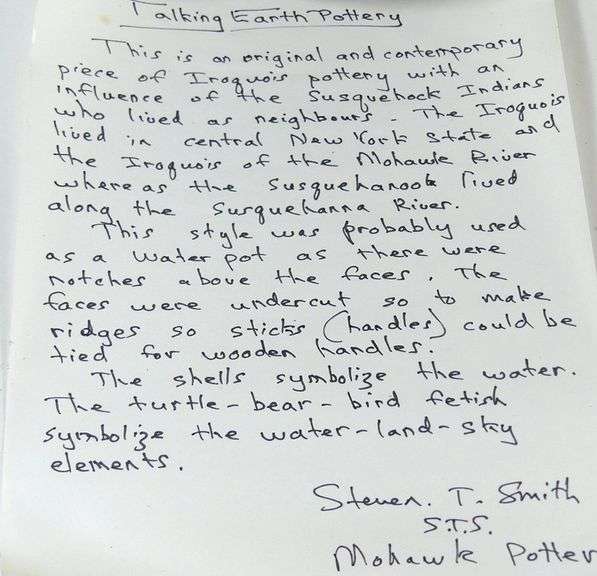 Talking Earth Pottery
This is an original and contemporary
piece of Iroquois pottery with an
influence of the Susquehock Indians
who lived as neighbours. The Iroquois
lived in central New York State and
the Iroquois of the Mohawk River
where as the Susquehanook lived
along the Susquehanna River.
This style was probably used
as a water pot as there were
notches above the faces. The
faces were undercut so to make
ridges so sticks (handles) could be
tied for wooden handles.
The shells symbolize the water.
The turtle-bear-bird fetish
symbolize the water-land-sky
elements.
Steven. T. Smith
S.T.S.
Mohawk Potter